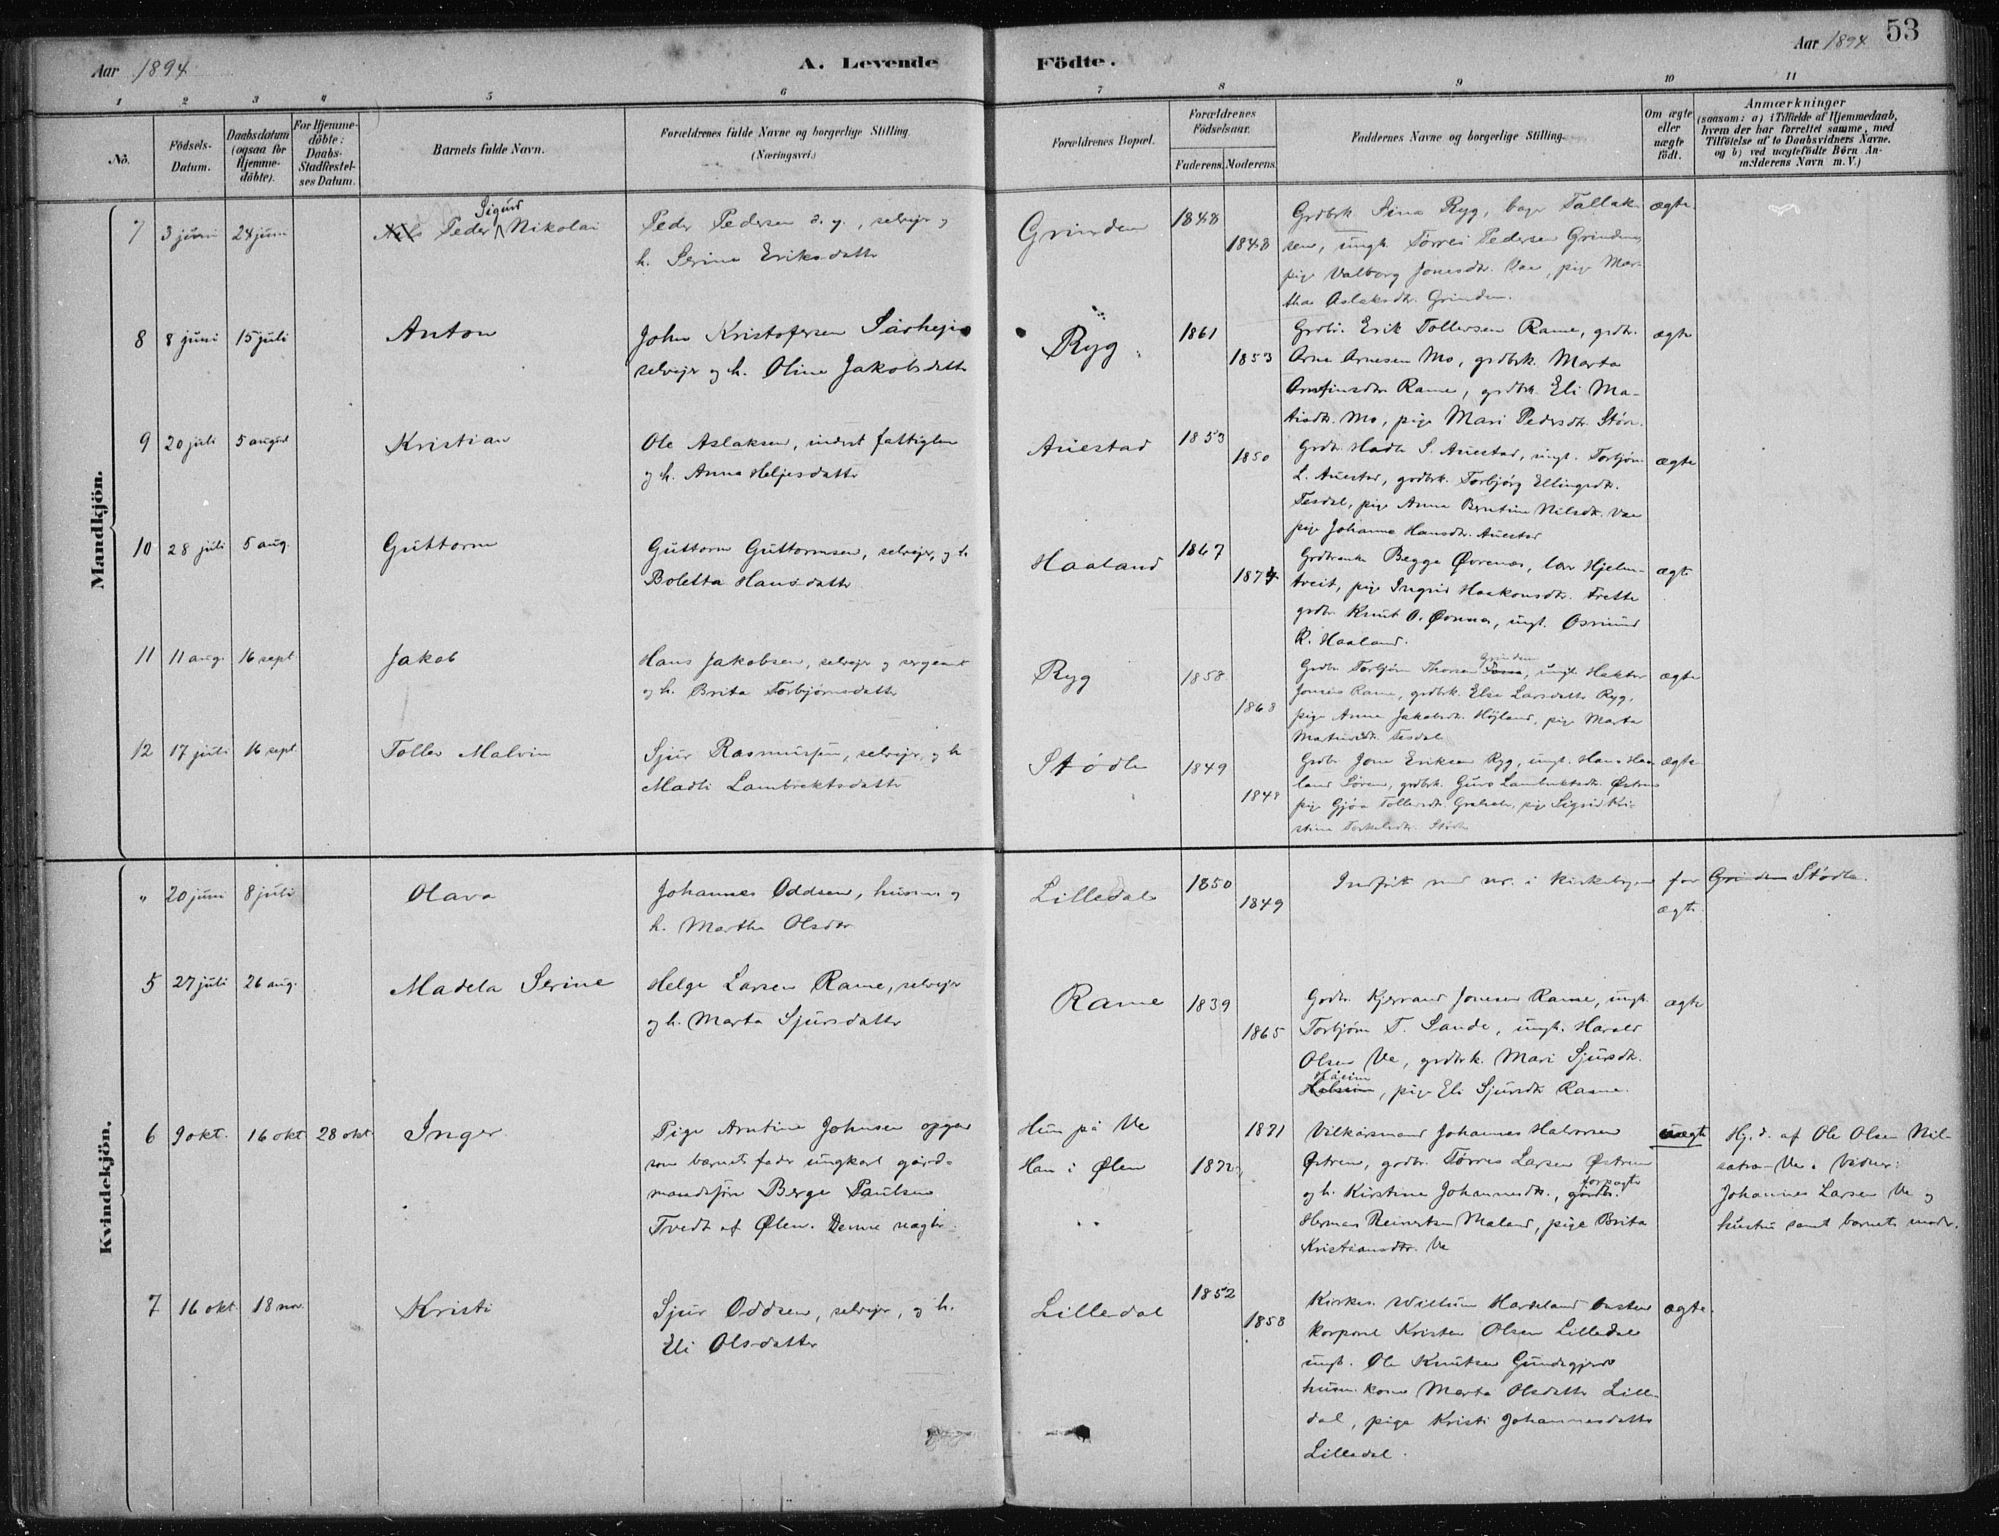 Aar 1894
A. Levende
Födte.
Aar 1894
53
1 2 3 4 5 6 7 8 9 10 11
No.
Födsels-
Datum.
Daabsdatum
(ogsaa for
Hjemme-
döbte).
For Hjemme-
döbte:
Daabs-
Stadfæstel-
ses Datum.
Barnets fulde Navn.
Forældrenes fulde Navne og borgerlige Stilling.
(Næringsvei.)
Forældrenes Bopæl.
Forældrenes
Födselsaar.
Faderens. Moderens.
Faddernes Navne og borgerlige Stilling.
Om ægte
eller
uægte
födt.
Anmærkninger
(saasom: a) i Tilfælde af Hjemmedaab,
hvem der har forrettet samme, med
Tilföielse af to Daabsvidners Navne,
og b) ved uægtefödte Börn An-
mælderens Navn m. V.)
Mandkjön.
7 3 juni 24 juni
Sigurd
Peder Nikolai
Peder Pedersen d. y., selvejer og
h. Serina Eriksdatter
Grinden
1848
1848
Grdbrk. Sina Ryg, Tallak-
sen, ungk. Tørres Pedersen Grinden,
pige Valborg Jonesdtr. Vae, pige Mar-
tha Aslaksdtr. Grinden.
ægte
8 8 juni 15 juli
Anton
John Kristofersen
selvejer og h. Oline Jakobsdatter
Ryg.
1861
1853
Grdbr. Erik Tollevsen Rame, grdbr.
Arne Arnesen Mo, grdbrk. Marta
Arnfinsdtr Rame, grdbrk Eli Ma-
tisdtr. Mo, pige Mari Pedersdtr. Støle.
ægte
9 20 juli 5 august
Kristian
Ole Aslaksen, inderst fattiglem
og h. Anna Heljesdatter
Auestad
1853
1850
Grdbr. Hadle S. Auestad, ungk. Torbjørn
L. Auestad, grdbrk. Torbjørg Ellingsdtr.
Tesdal, pige Anna Berntine Nilsdtr. Vae
pige Johanna Hansdtr. Auestad
ægte
10 28 juli 5 aug.
Guttorm
Guttorm Guttormsen, selvejer, og h.
Boletta Hansdatter
Haaland
1867
1874
Begga Øvrenes, Hjelm-
treit, pige Ingrid Haakonsdtr. Frette
grdbr. Knut O. ungk. Osmund
R. Haaland.
ægte
11 11 aug. 16 sept
Jakob
Hans Jakobsen, selvejer og sergeant
og h. Brita Torbjørnsdatter
Ryg
1858
1868
Grinden
Grdbr. Torbjørn Thorsen ungk. Haktor
Jonesen Rame, grdbrk. Else Larsdatter Ryg,
pige Anna Jakobsdtr. Højland, pige Marta
Tesdal
ægte
12 17 juli 16 sept.
Tollev Malvin
Sjur Rasmussen, selvejer, og h
Madli Lambrektsdatter
Stødle
1849
1848
Grdbr. Jone Eriksen Ryg, ungk. Hans Haa-
land Sören, grdbrk. Guro Lambrektsdtr. Østrem
pige Gjøa Tollevsdtr. pige Sigrid Kri-
stine Torkelsdtr. Stødle
ægte
Kvindekjön.
" 20 juni 8 juli
Olava
Johannes Oddsen, husm. og
h. Martha Olsdtr
Lilledal
1850
1849
Indført med nr. i kirkebogen for Grinden Stødle.
ægte
5 27 juli 26 aug.
Madela Serine
Helge Larsen Rame, selvejer
og h. Marta Sjursdatter
Rame
1839
1865
Grdbr. Kjerrand Jonesen Rame, ungk.
Torbjørn T. Sande, ungk. Harald
Olsen Ve, grdbrk. Mari Sjursdtr.
pige Eli Sjursdtr Rame.
ægte
6 9 okt. 16 okt 28 okt.
Inger
Pige Arntine Johnsen opgav
som barnets fader ungkarl gård-
mandssøn Berge Paulsen
Tvedt af Ølen. Denne nægter.
Hun på Ve
Han i Ølen
1872
1871
Vilkårsmand Johannes Halvorsen
Østrem, grdbr. Tørres Larsen Østrem
og h. Kirstine Johannesdtr., forpagter
Herman Reinertsen Maland, pige Brita
Kristiansdtr. Ve
uægte
Hj.d. af Ole Olsen Nil-
satræ-Ve. Vidner:
Johannes Larsen Ve og
hustru samt barnets moder.
7 16 okt. 18 nov.
Kristi
Sjur Oddsen, selvejer, og h.
Eli Olsdatter
Lilledal
1852
1858
Kirkes. Willum Hardeland
korporal Kristen Olsen Lilledal
ungk. Ole Knutsen Gundegjerd
husm. kone Marta Olsdatter Lille-
dal, pige Kristi Johannesdatter
Lilledal.
ægte.